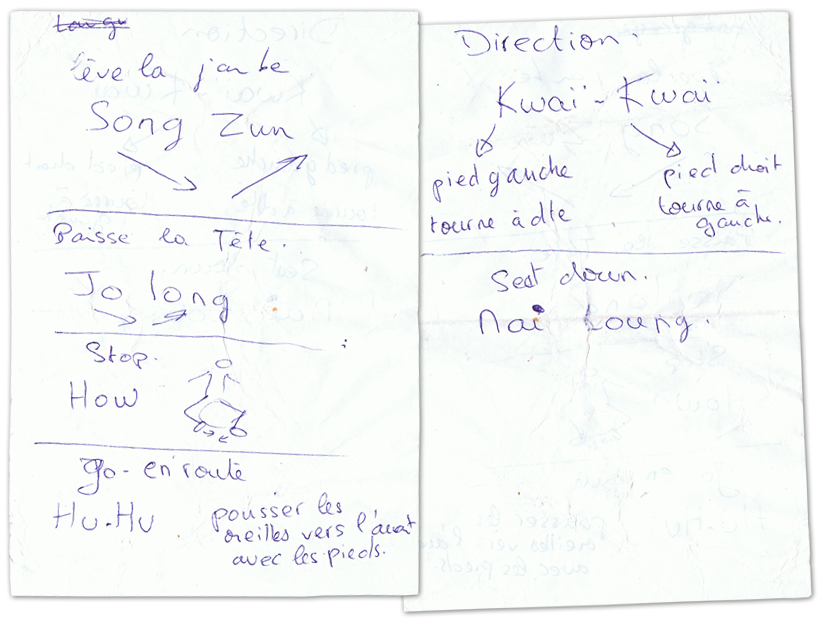 lève la jambe
Song Zun
Baisse la Tête.
Jo long
Stop.
How
go - en route
Hu-Hu
pousser les
oreilles vers l'avant
avec les pieds.
Direction.
Kwaï - Kwaï
pied gauche
tourne à dte
pied droit
tourne à
gauche.
Seat down.
Naï Loung.